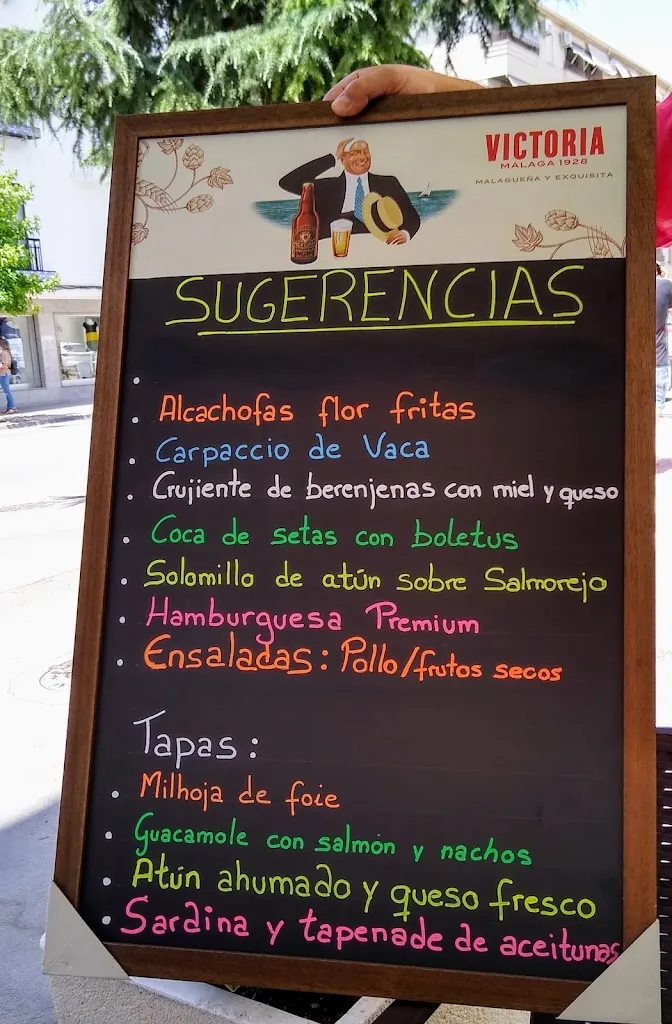 VICTORIA
MÁLAGA 1928
MALAGUEÑA Y EXQUISITA
SUGERENCIAS
•
• Alcachofas flor fritas
• Carpaccio de Vaca
• Crujiente de berenjenas con miel y queso
• Coca de setas con boletus
• Solomillo de atún sobre Salmorejo
• Hamburguesa Premium
• Ensaladas: Pollo/frutos secos
Tapas:
• Milhoja de foie
• Guacamole con salmón y nachos
• Atún ahumado y queso fresco
• Sardina y tapenade de aceitunas